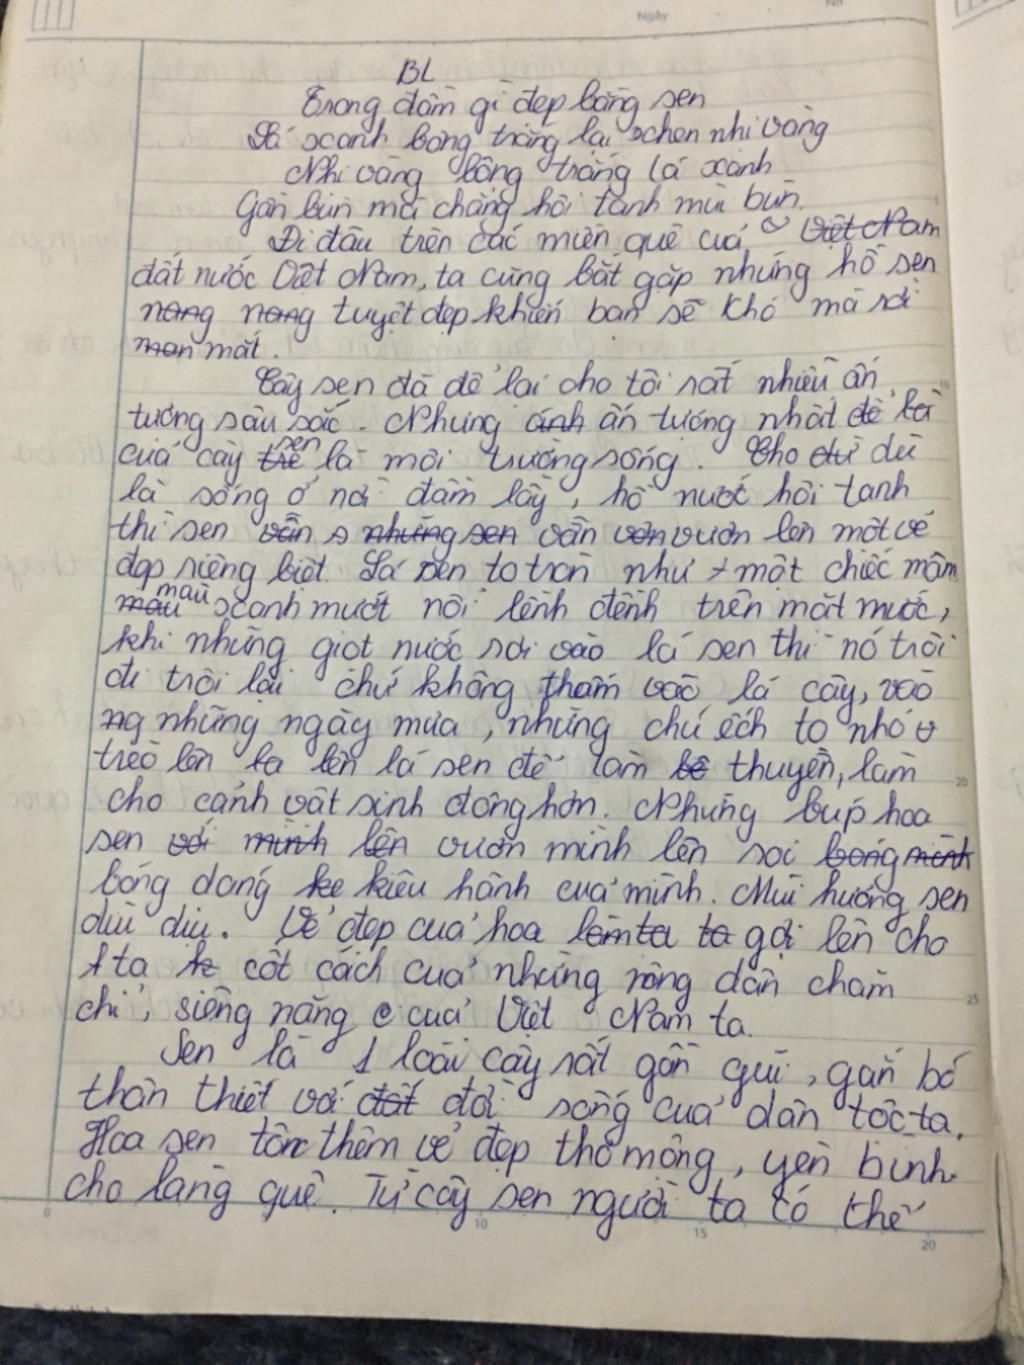 Ngày
No.
BL
Trong đầm gì đẹp bằng sen
Lá xanh bông trắng lại chen nhị vàng
Nhị vàng bông trắng lá xanh
Gần bùn mà chẳng hôi tanh mùi bùn.
Đi đâu trên các miền quê của Việt Nam
đất nước Việt Nam, ta cũng bắt gặp những hồ sen
nong nong tuyệt đẹp khiến bạn sẽ khó mà rời
man mắt.
Cây sen đã để lại cho tôi rất nhiều ấn
tượng sâu sắc. Nhưng ánh ấn tượng nhất để là
của cây tre sen là môi trường sống. Cho dù dù
là sống ở nơi đầm lầy, hồ nước hôi tanh
thì sen vẫn s nhưng sen vẫn vơn vươn lên một vẻ
đẹp riêng biệt. Lá sen to tròn như 1 một chiếc mâm
mâu màu xanh mướt nổi lênh đênh trên mặt nước,
khi những giọt nước rơi vào lá sen thì nó trôi
đi trôi lại chứ không thấm vào lá cây, vào
ng những ngày mưa, những chú ếch to nhỏ
trèo lên la lên lá sen để làm bè thuyền, làm
cho cảnh vật sinh động hơn. Những búp hoa
sen với mình lên vươn mình lên soi bóng mình
bóng dáng ke kiêu hãnh của mình. Mùi hương sen
dìu dịu. Vẻ đẹp của hoa làm ta ta gợi lên cho
1 ta k cốt cách của những nông dân chăm
chỉ, siêng năng c của Việt Nam ta.
Sen là 1 loài cây rất gần gũi, gắn bó
thân thiết với đất đời sống của dân tộc ta.
Hoa sen tôn thêm vẻ đẹp thơ mộng, yên bình
cho làng quê. Từ cây sen người ta có thể
10
15
20
20
25